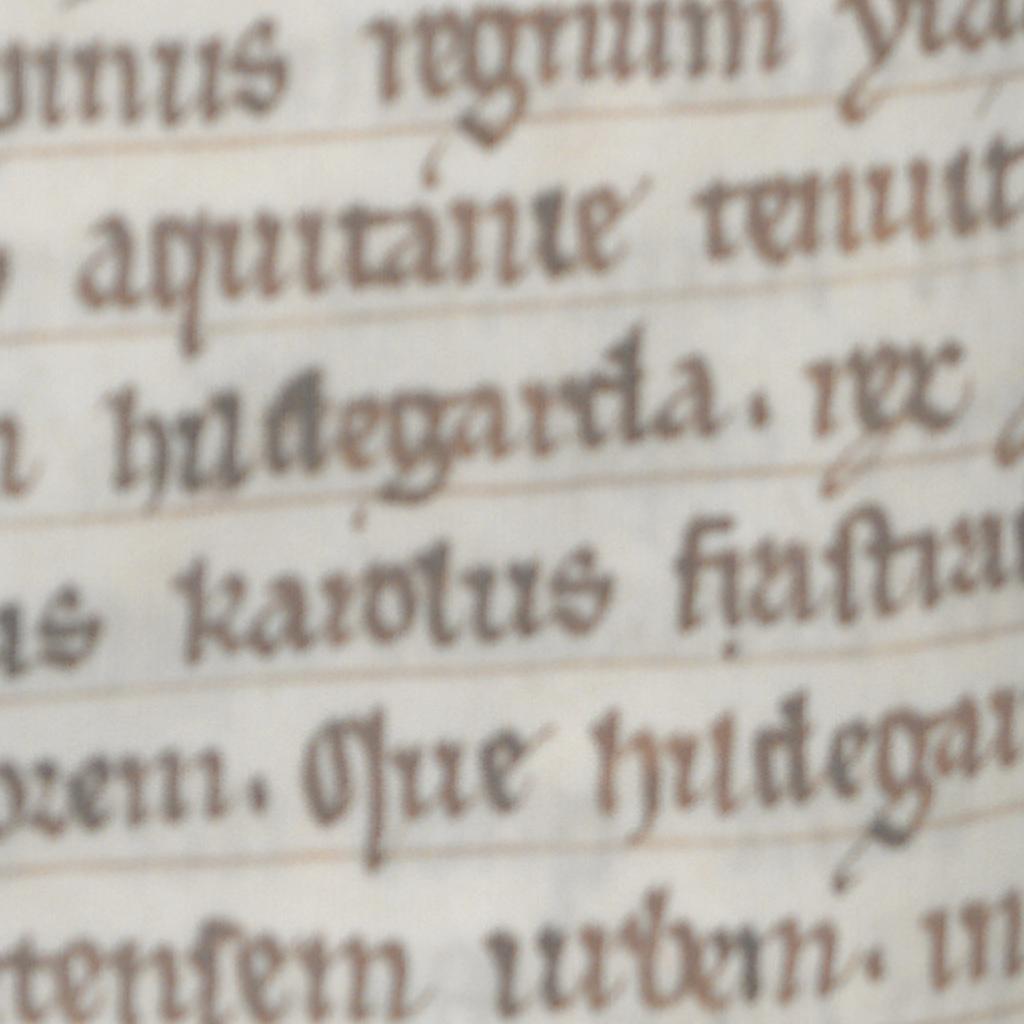 regnum
aquitanie tenuit
hildegarda. rex
us karolus
orem. Que hildegar
tensem urbem. in